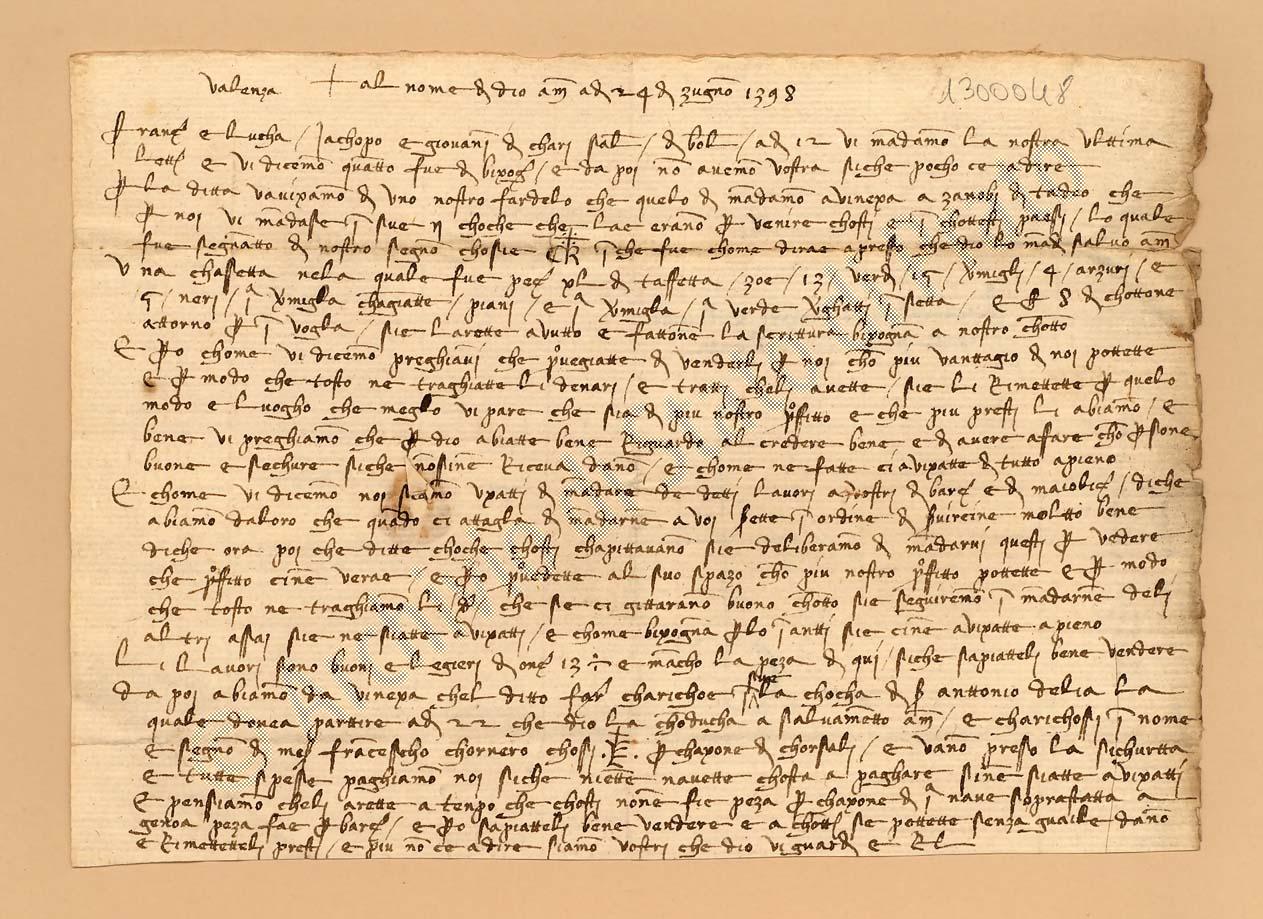 valenza + al nome di dio am adi 24 di zugno 1398
1300048
Franc e lucha / Jachopo e giovani di chari sal / di bol / adi 12 vi mādamo la nostra ulttima
lett e vi dicemo quatto fue di bixog / e da poi nō avemo vostra siche pocho ce a dire
per la ditta vavixamo di uno nostro fardelo che quelo di mādamo a vinexa a zanobi di tadeo che
per noi vi mādase ī sue choche che lae erano per venire chosti e ī chottesti paesi / lo quale
fue segnatto di nostro segno chosie ī che fue chome dirae apresso che dio lo mādi salvo am
Una chassetta nela quale fue pez xl di taffetta / zoe / 13 verdi / 15 / vmigli / 4 / arzuri / e
5 / neri / 1 vmigla chagiatte / piani / e 1 vmigla / 1 verde vghatti ī setta / e 8 di chottone
attorno per 1 vogla / sie larette avutto e fattone la scrittura bixogna a nostro chōtto
E pero chome vi dicemo preghiavi che provegiatte di venderli per noi chō piu vanttagio di noi pottette
e per modo che tosto ne traghiatte li denari / e tratti cheli avette / sie li rimettette per quelo
modo e luogho che meglo vi pare che sia di piu nostro proffitto e che piu presti li abiamo / e
bene vi preghiamo che per dio abiatte bene riguardo al credere bene e di avere affare chō persone
buone e sechure siche nossine riceva dano / e chome ne fatte ci avixatte di tutto apieno
E chome vi dicemo noi siamo uxatti di mādare de detti lavori a vostri di barz e di maiolic / diche
abiamo daloro che quādo ci attagla di mādarne a voi sette ī ordine di servircine moltto bene
diche ora poi che ditte choche chosti chapittavano sie deliberamo di mādarvi questi per vedere
che proffitto cine verae / e pero provedette al suo spazo chō piu nostro proffitto pottette e per modo
che tosto ne traghiamo li d che se ci gittarano buono chōtto sie seguiremo ī mādarne deli
altri assai sie ne siatte avixatti / e chome bixogna perlo īantti sie cine avixatte apieno
Li lavori sono buoni e legieri di onz 13 ÷ e mācho la peza di qui / siche sapiatteli bene vendere
da poi abiamo da vinexa chel ditto far charichoe ī su la chocha di s anttonio delia la
quale dovea parttire adi 22 che dio la choducha a salvamētto am / e charichossi ī nome
e segno di mes francesscho chornero chossi . per chapone di chorsali / e vano presso la sichurtta
e tutte spesse paghiamo noi siche niette navette chosta a paghare sine siatte avixatti
E pensiamo cheli arette a tenpo che chosti none fie peza per chapone di 1 nave soprastatta a
genoa peza fae per barz / e pero sapiatteli bene vendere e a chōtti se pottette senza guaile dano
e rimettetteli presti / e piu no ce a dire siamo vostri che dio vi guardi e